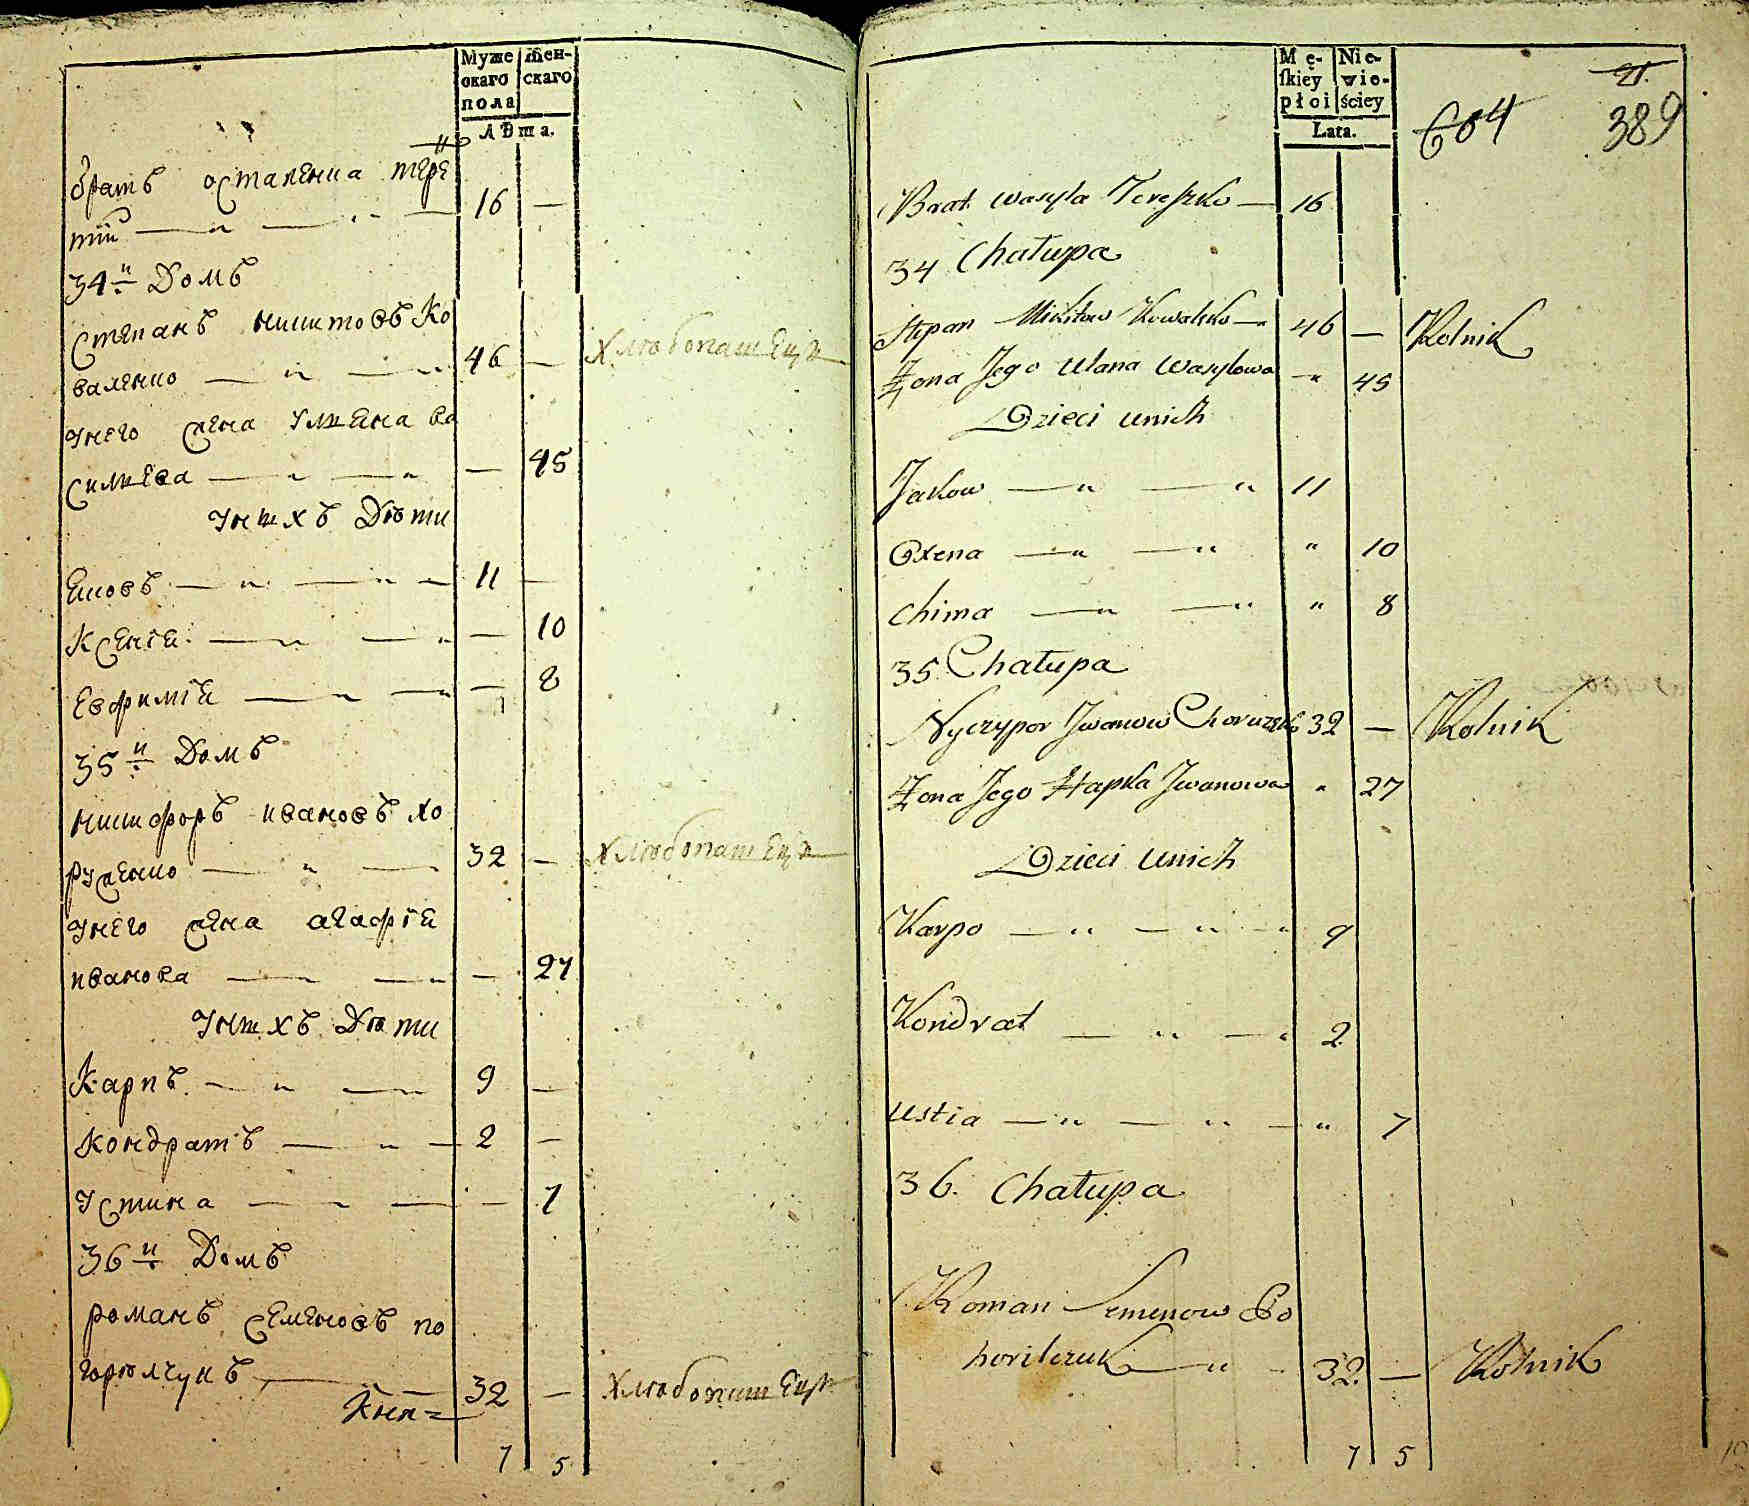 Муже
скаго
пола
Жен-
скаго
Лѣта.
братъ остапенка тере
тiй — „ — „ — 16 —
34й Домъ
степанъ никитовъ ко
валенко — „ — „ 46 — хлѣбопашецъ
унего жена улиена ва
силиева — „ — „ — 45
унихъ Дѣти
Яковъ — „ — „ — 11 —
Ксенiя — „ — „ — 10
Евфимiя — „ — „ — 8
35й Домъ
никифоръ ивановъ хо
руженко — „ — 32 — хлѣбопашецъ
унего жена агафiя
иванова — „ — „ — 27
унихъ Дѣти
Карпъ — „ — „ 9 —
Кондратъ — „ — 2 —
устина — „ — — 7
36й Домъ
романъ семеновъ по
горюлчукъ — 32 — хлѣбопашецъ
7 5
Mę-
ſkiey
płci
Nie-
wie-
ściey
Lata.
21.
604 389
Brat wasyla Tereszko — 16
34 Chałupa
Stepan Mikitow Kowalsko — „ 46 — Rolnik
Żona Jego Ulana Wasylowa — „ 45
Dzieci unich
Jakow — „ — „ 11
Oxena — „ — „ „ 10
Chima — „ — „ „ 8
35 Chałupa
Nyczypor Jwanow Choruzenko 32 — Rolnik
Żona Jego Hapka Jwanowa „ 27
Dzieci unich
Karpo — „ — „ — „ 9
Kondrat — „ — „ 2
Ustia — „ — „ — „ 7
36. Chałupa
Roman Semenow Po
horilczuk — „ — 32. — Rolnik
7 5